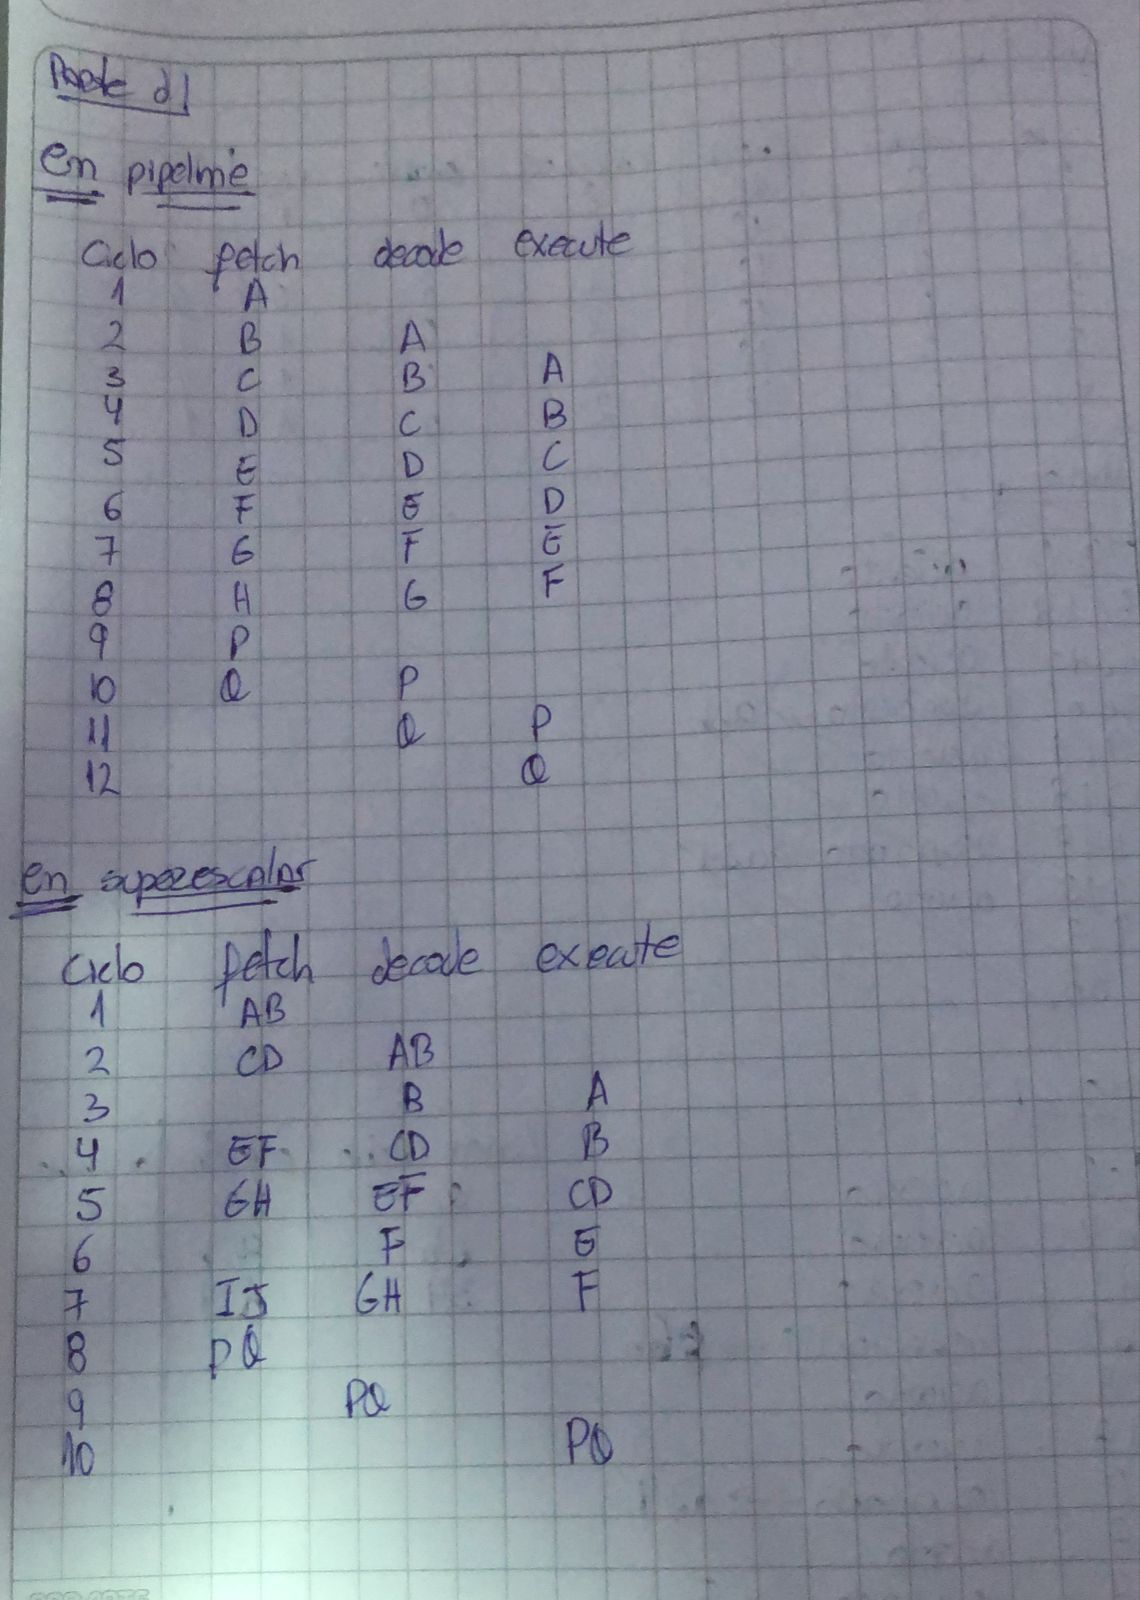 Parte d)
en pipeline
Ciclo fetch decode execute
1 A
2 B A
3 C B A
4 D C B
5 E D C
6 F E D
7 G F E
8 H G F
9 P
10 Q P
11 Q P
12 Q
en superescalar
Ciclo fetch decode execute
1 AB
2 CD AB
3 B A
4 EF CD B
5 GH EF CD
6 F E
7 IJ GH F
8 PQ
9 PQ
10 PQ